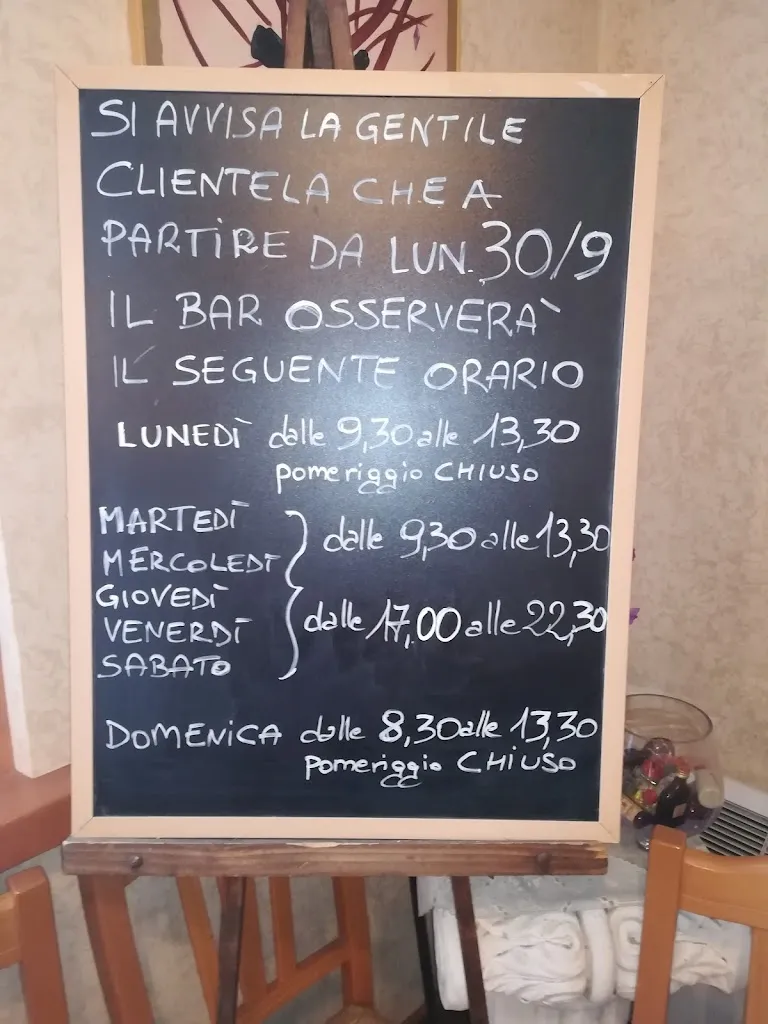 SI AVVISA LA GENTILE
CLIENTELA CHE A
PARTIRE DA LUN. 30/9
IL BAR OSSERVERÀ
IL SEGUENTE ORARIO
LUNEDÌ dalle 9,30 alle 13,30
pomeriggio CHIUSO
MARTEDÌ
MERCOLEDÌ
GIOVEDÌ
VENERDÌ
SABATO
dalle 9,30 alle 13,30
dalle 17,00 alle 22,30
DOMENICA dalle 8,30 alle 13,30
pomeriggio CHIUSO